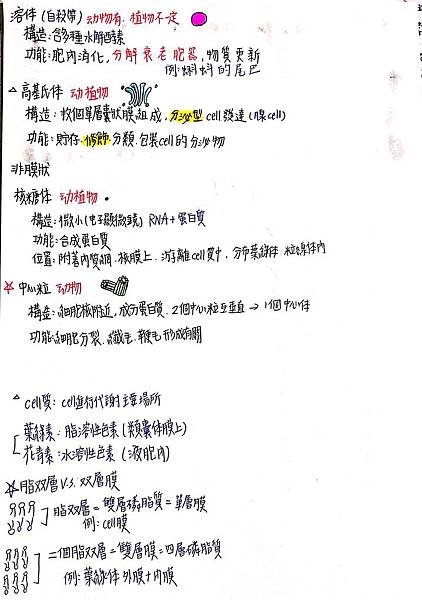 溶体 (自殺帶) 动物有. 植物不定
構造: 含多種水解酵素
功能: 胞內消化, 分解衰老胞器, 物質更新
例: 蝌蚪的尾巴
△ 高基氏体 动植物
構造: 數個單層囊狀膜組成, 分泌型 cell 發達 (腺cell)
功能: 貯存. 修飾. 分類. 包裝 cell 的分泌物
非膜狀
核糖体 动植物
構造: 微小 (电子顯微鏡) RNA + 蛋白質
功能: 合成蛋白質
位置: 附著內質網. 核膜上. 游離 cell 質中, 分布葉綠体 粒線体內
☆ 中心粒 动物
構造: 細胞核附近, 成分蛋白質. 2個中心粒互垂直 → 1個中心体
功能: 細胞分裂. 纖毛. 鞭毛形成有關
△ cell質: cell進行代謝主要場所
葉綠素: 脂溶性色素 (類囊体膜上)
花青素: 水溶性色素 (液胞內)
☆ 脂双層 V.S. 双層膜
脂双層 = 雙層磷脂質 = 單層膜
例: cell膜
= 二個脂双層 = 雙層膜 = 四層磷脂質
例: 葉綠体外膜 + 內膜